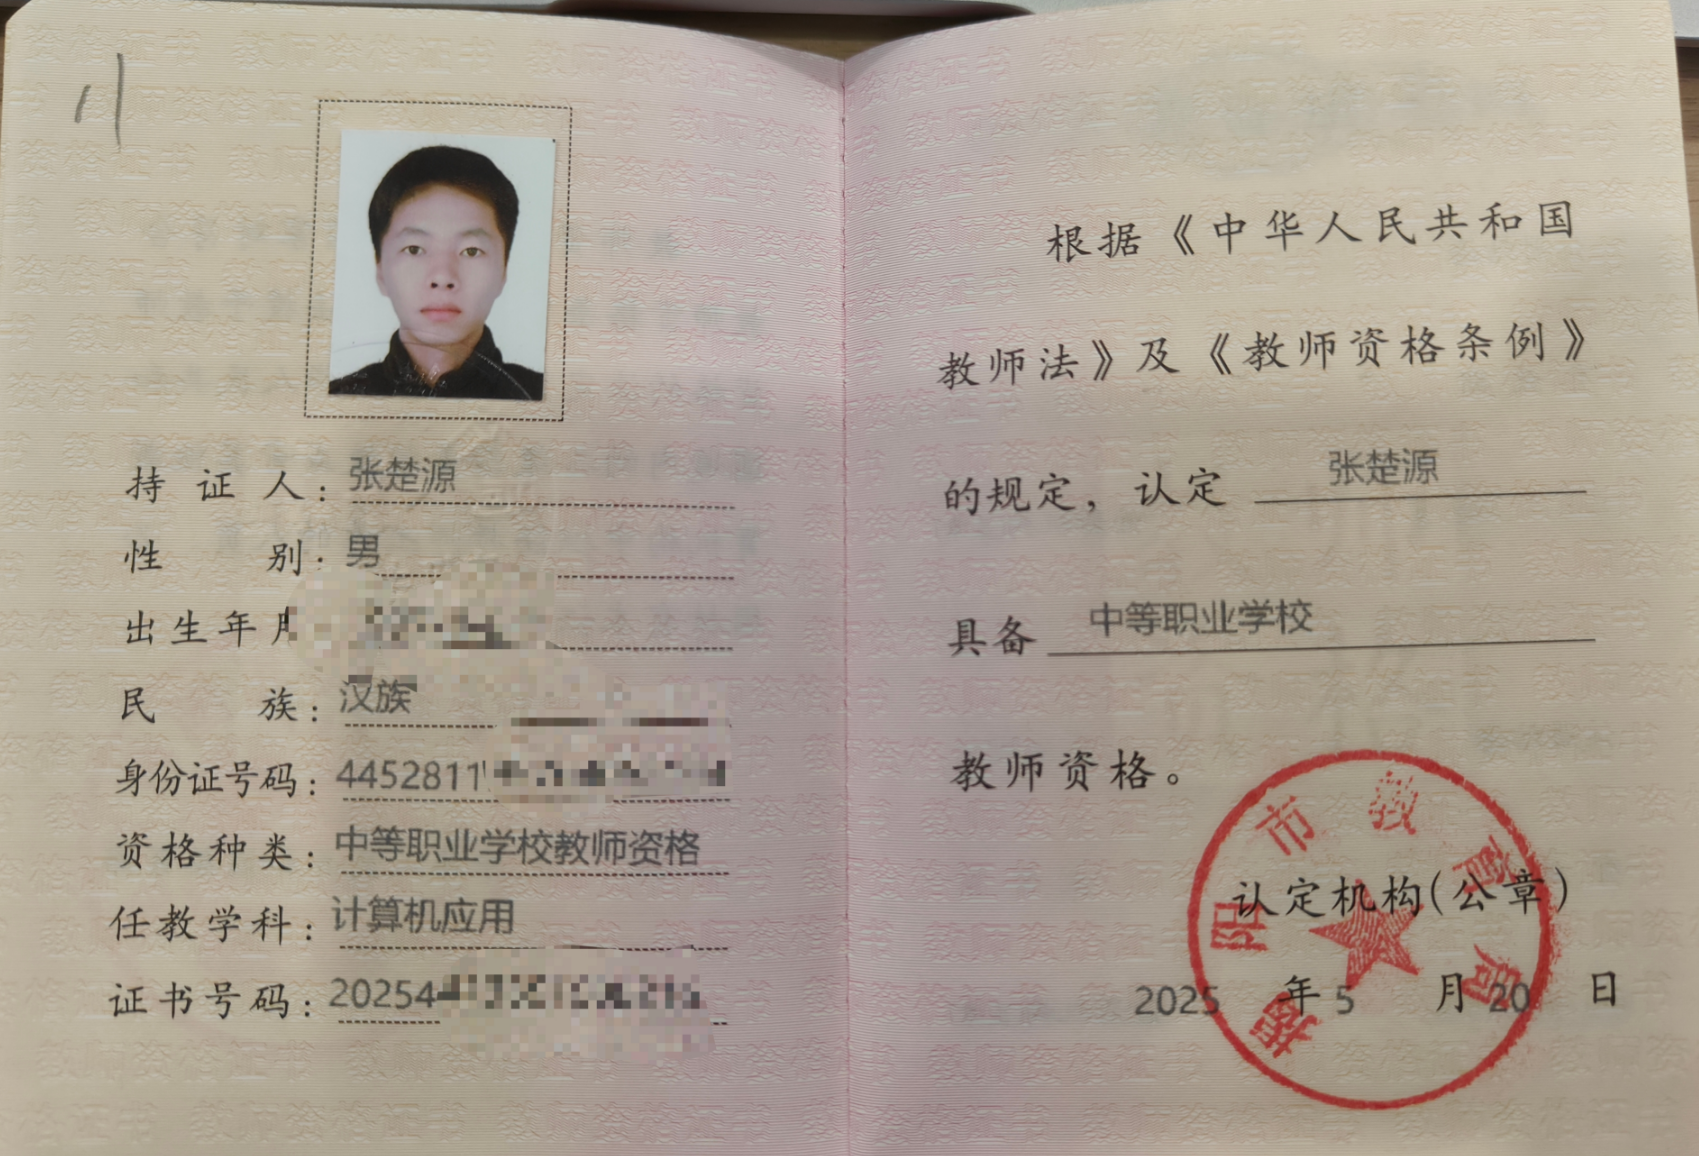 持证人：张楚源
性别：男
出生年月
民族：汉族
身份证号码：4452811
资格种类：中等职业学校教师资格
任教学科：计算机应用
证书号码：20254
根据《中华人民共和国
教师法》及《教师资格条例》
的规定，认定 张楚源
具备 中等职业学校
教师资格。
揭阳市教育局
认定机构(公章)
2025年5月20日